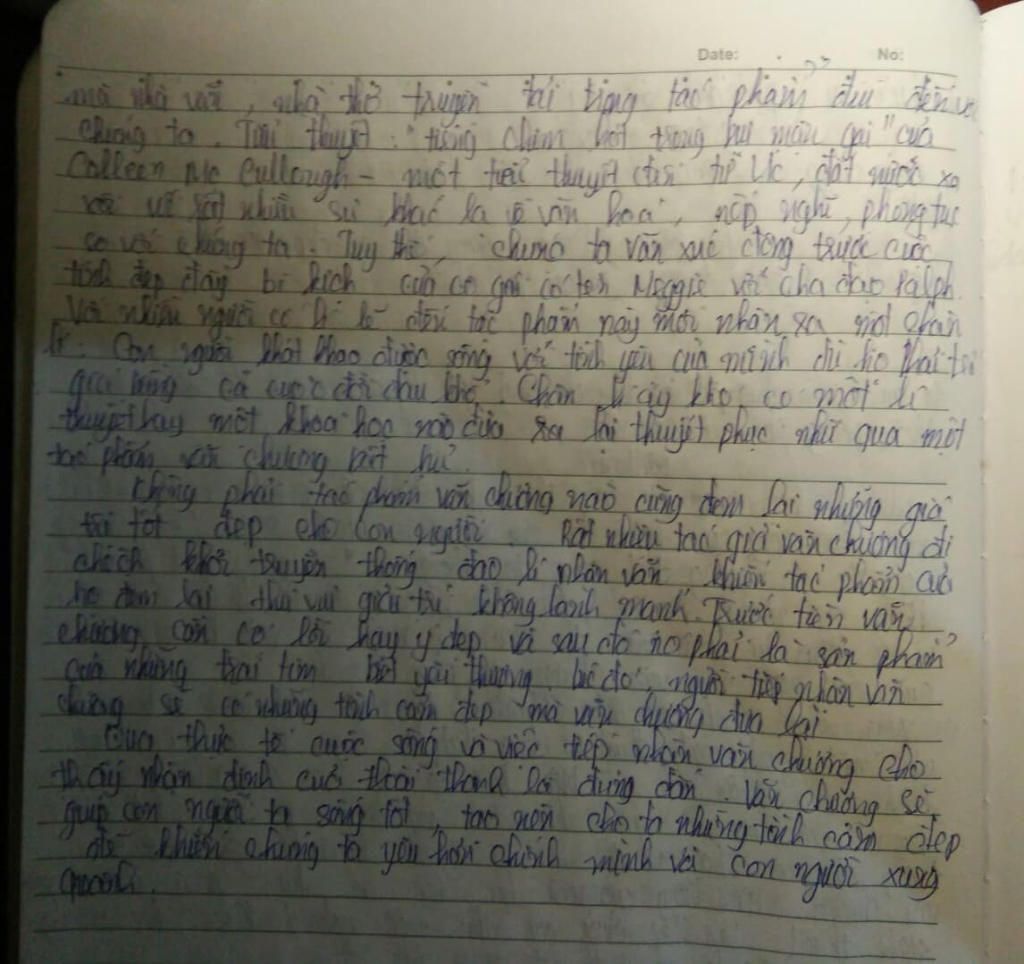 Date: No:
mà nhà văn, nhà thơ truyền tải trong tác phẩm đều đến với
chúng ta. Tiểu thuyết: "tiếng chim hót trong bụi mận gai" của
Colleen Mc Cullough - một tiểu thuyết đến từ Úc, đất nước xa
xôi với rất nhiều sự khác lạ về văn hoá, nếp nghĩ, phong tục
so với chúng ta. Tuy thế, chúng ta vẫn xúc động trước cuộc
tình đẹp đầy bi kịch của cô gái có tên Meggie với cha đạo Ralph.
Với nhiều người có lẽ đến tác phẩm này mới nhận ra một chân
lí: Con người khát khao được sống với tình yêu của mình dù họ phải trả
giá bằng cả cuộc đời đau khổ. Chân lí ấy khó có một lí
thuyết hay một khoa học nào đưa ra lại thuyết phục như qua một
tác phẩm văn chương bất hủ.
Không phải tác phẩm văn chương nào cũng đem lại những giá
trị tốt đẹp cho con người. Rất nhiều tác giả văn chương đi
chệch khỏi truyền thống đạo lí nhân văn khiến tác phẩm của
họ đem lại thú vui giải trí không lành mạnh. Trước tiên văn
chương cần có lời hay ý đẹp và sau đó nó phải là sản phẩm
của những trái tim biết yêu thương. lúc đó, người tiếp nhận văn
chương sẽ có những tình cảm đẹp mà văn chương đưa lại
Qua thực tế cuộc sống và việc tiếp nhận văn chương cho
thấy nhận định của Hoài Thanh là đúng đắn. Văn chương sẽ
giúp con người ta sống tốt, tạo nên cho ta những tình cảm đẹp
để khiến chúng ta yêu hơn chính mình và con người xung
quanh.